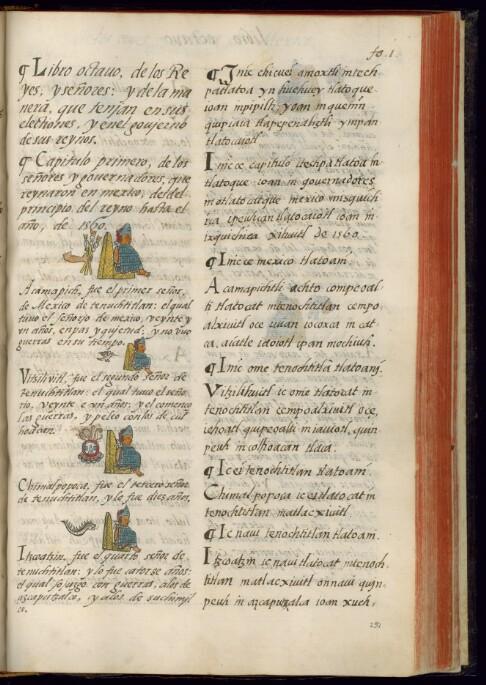 fo. 1.
¶ Libro octauo, de los Re
yes, y señores: y de la ma
nera, que tenjan en sus
electiones, y en el goujerno
de sus reynos.
¶ Capitulo primero, de los
señores y gouernadores, que
reynaron en mexico, desdel
principio, del reyno hasta el
año, de 1560.
Acamapich, fue el primer señor,
de Mexico de tenuchtitlan: el qual
tuuo el señorio de mexico, veynte y
vn años, en paz y quietud, y no vuo
guerras en su tiempo.
Vitzilivitl, fue el segundo señor de
tenuchtitlan: el qual tuuo el seño
rio, veynte e vn años: y el començo
las guerras, y peleo con los de cul
hoacan.
Chimalpopoca, fue el tercero señor
de tenuchtitlan, y lo fue diez años.
Itzcoatzin, fue el quarto señor de
tenuchtitlan: y lo fue catorze años:
el qual sojuzgo con guerras, a los de
azcaputzalco, y a los de suchimil
co.
¶ Inic chicuei amoxtli intech
patlatoa yn huehuey tlatoque
ioan in pipilti, yoan in quenin
quipiaia tlapepenaliztli ynpan
tlatocaiotl
Inic ce capitulo itechpa tlatoa in
tlatoque ioan in gouernadores
in otlatocatque mexico
ipeuhcan tlatocaiotl ioan in
ixquichica xihuitl de 1560.
¶ Inic ce mexico tlatoani.
Acamapichtli achto compeoal
ti tlatocat in tenochtitlan cempo
alxiuitl oce iuian iocoxca in cat
ca, aiatle iaoiotl ipan mochiuh.
¶ Inic ome tenochtitlã tlatoanj.
Vitzilihuitl ic ome tlatocat in
tenochtitlan cempoalxiuitl oce,
iehoatl quipeoalti in iauiotl, quin
peuh in colhoacan tlaca.
¶ Ic ei tenochtitlan tlatoani.
Chimalpopoca ic ei tlatocat in
tenochtitlan matlacxiuitl.
¶ Ic naui tenochtitlan tlatoani.
Itzcoatzin ic naui tlatocat in tenoch
titlan matlacxiuitl onnaui quin
peuh in azcaputzalca ioan xuch,
251